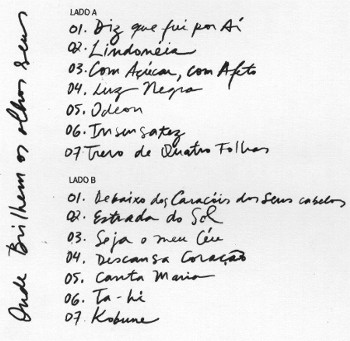 Onde Brilhem os olhos seus
LADO A
01. Diz que fui por Aí
02. Lindonéia
03. Com Açúcar, com Afeto
04. Luz Negra
05. Odeon
06. Insensatez
07 Trevo de Quatro Folhas
LADO B
01. Debaixo dos Caracóis dos Seus cabelos
02. Estrada do Sol
03. Seja o meu Céu
04. Descansa Coração
05. Canta Maria
06. Ta-hi
07. Kobune